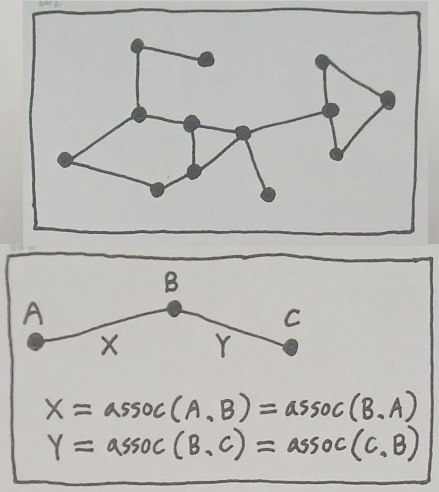 B
A
C
X
Y
X = assoc(A.B) = assoc(B.A)
Y = assoc(B.C) = assoc(C.B)